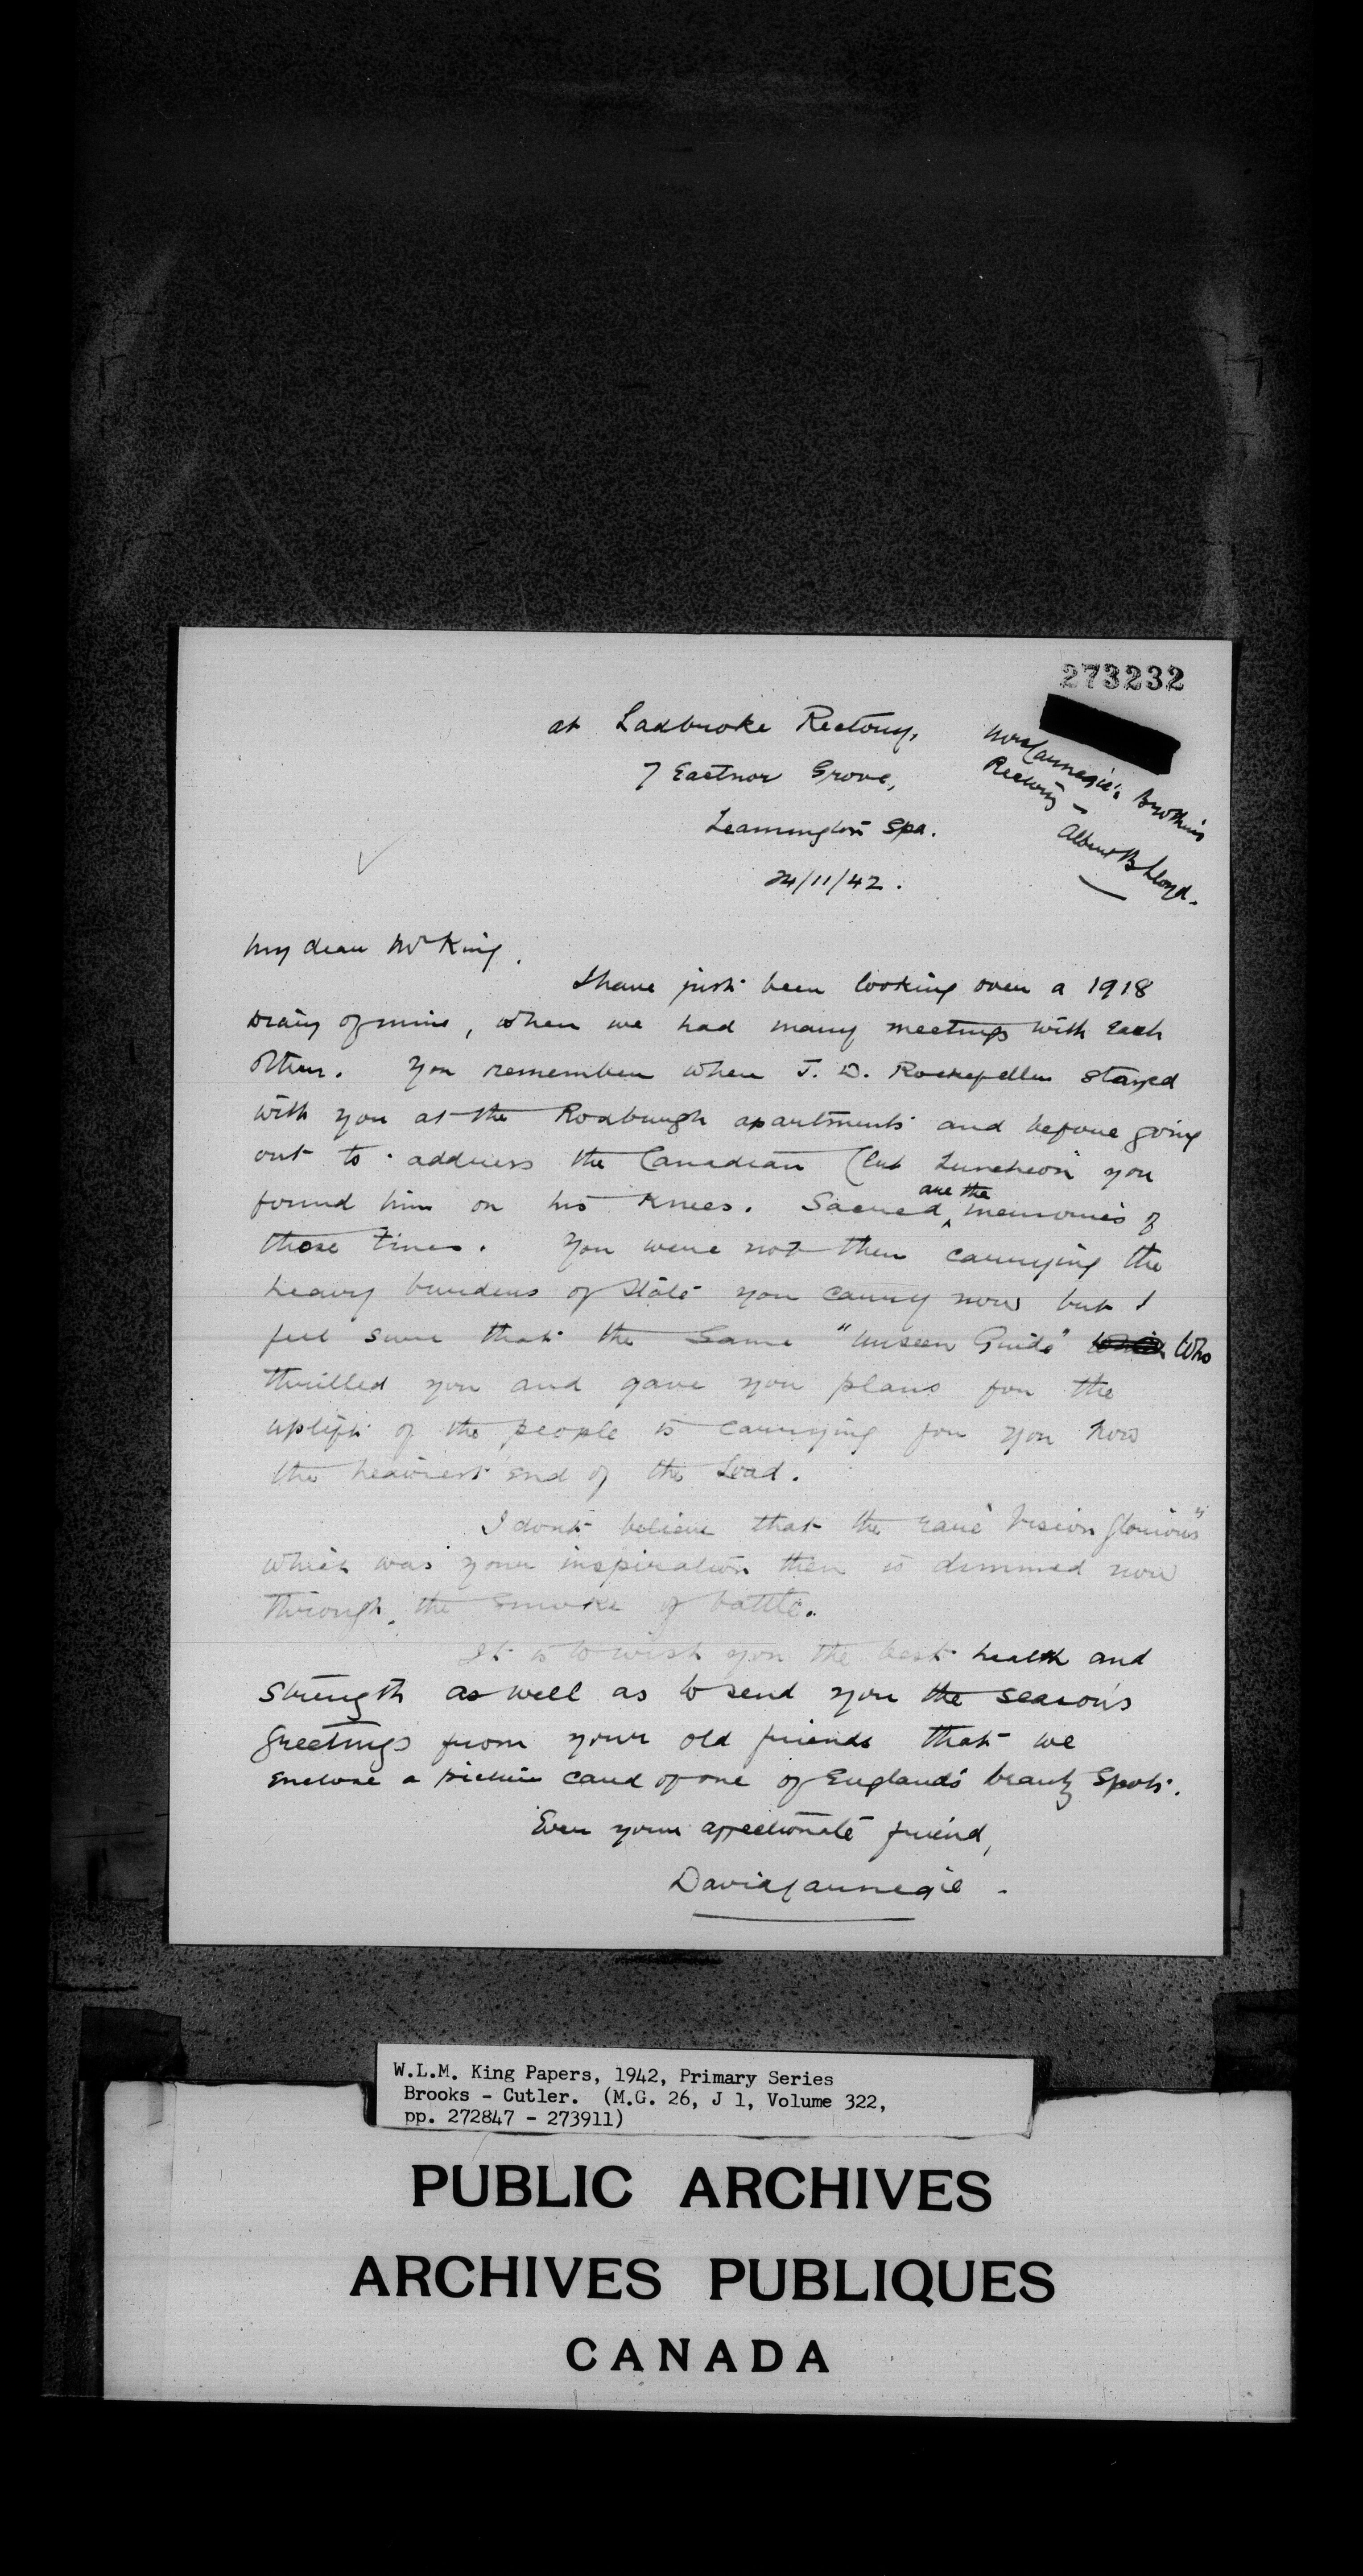 273232
at Ladbroke Rectory,
7 Eastnor Grove,
Leamington Spa.
24/11/42.
Mrs Carnegie's Brother's
Rectory –
Albert B Lloyd.
My dear Mr King,
I have just been looking over a 1918
Diary of mine, when we had many meetings with each
other. You remember when J. D. Rockefeller stayed
with you at the Roxburgh apartments and before going
out to address the Canadian Club Luncheon you
found him on his knees. Sacred are the memories of
those times. You were not then carrying the
heavy burdens of State you carry now but I
feel sure that the same "Unseen Guide" Who
thrilled you and gave you plans for the
uplift of the people is carrying for you now
the heaviest end of the Load.
I don't believe that the rare "Vision Glorious"
which was your inspiration then is dimmed now
through the smoke of battle.
It is to wish you the best health and
strength as well as to send you the season's
greetings from your old friends that we
enclose a picture card of one of England's beauty spots.
Ever your affectionate friend,
David Carnegie.
W.L.M. King Papers, 1942, Primary Series
Brooks - Cutler. (M.G. 26, J 1, Volume 322,
pp. 272847 - 273911)
PUBLIC ARCHIVES
ARCHIVES PUBLIQUES
CANADA